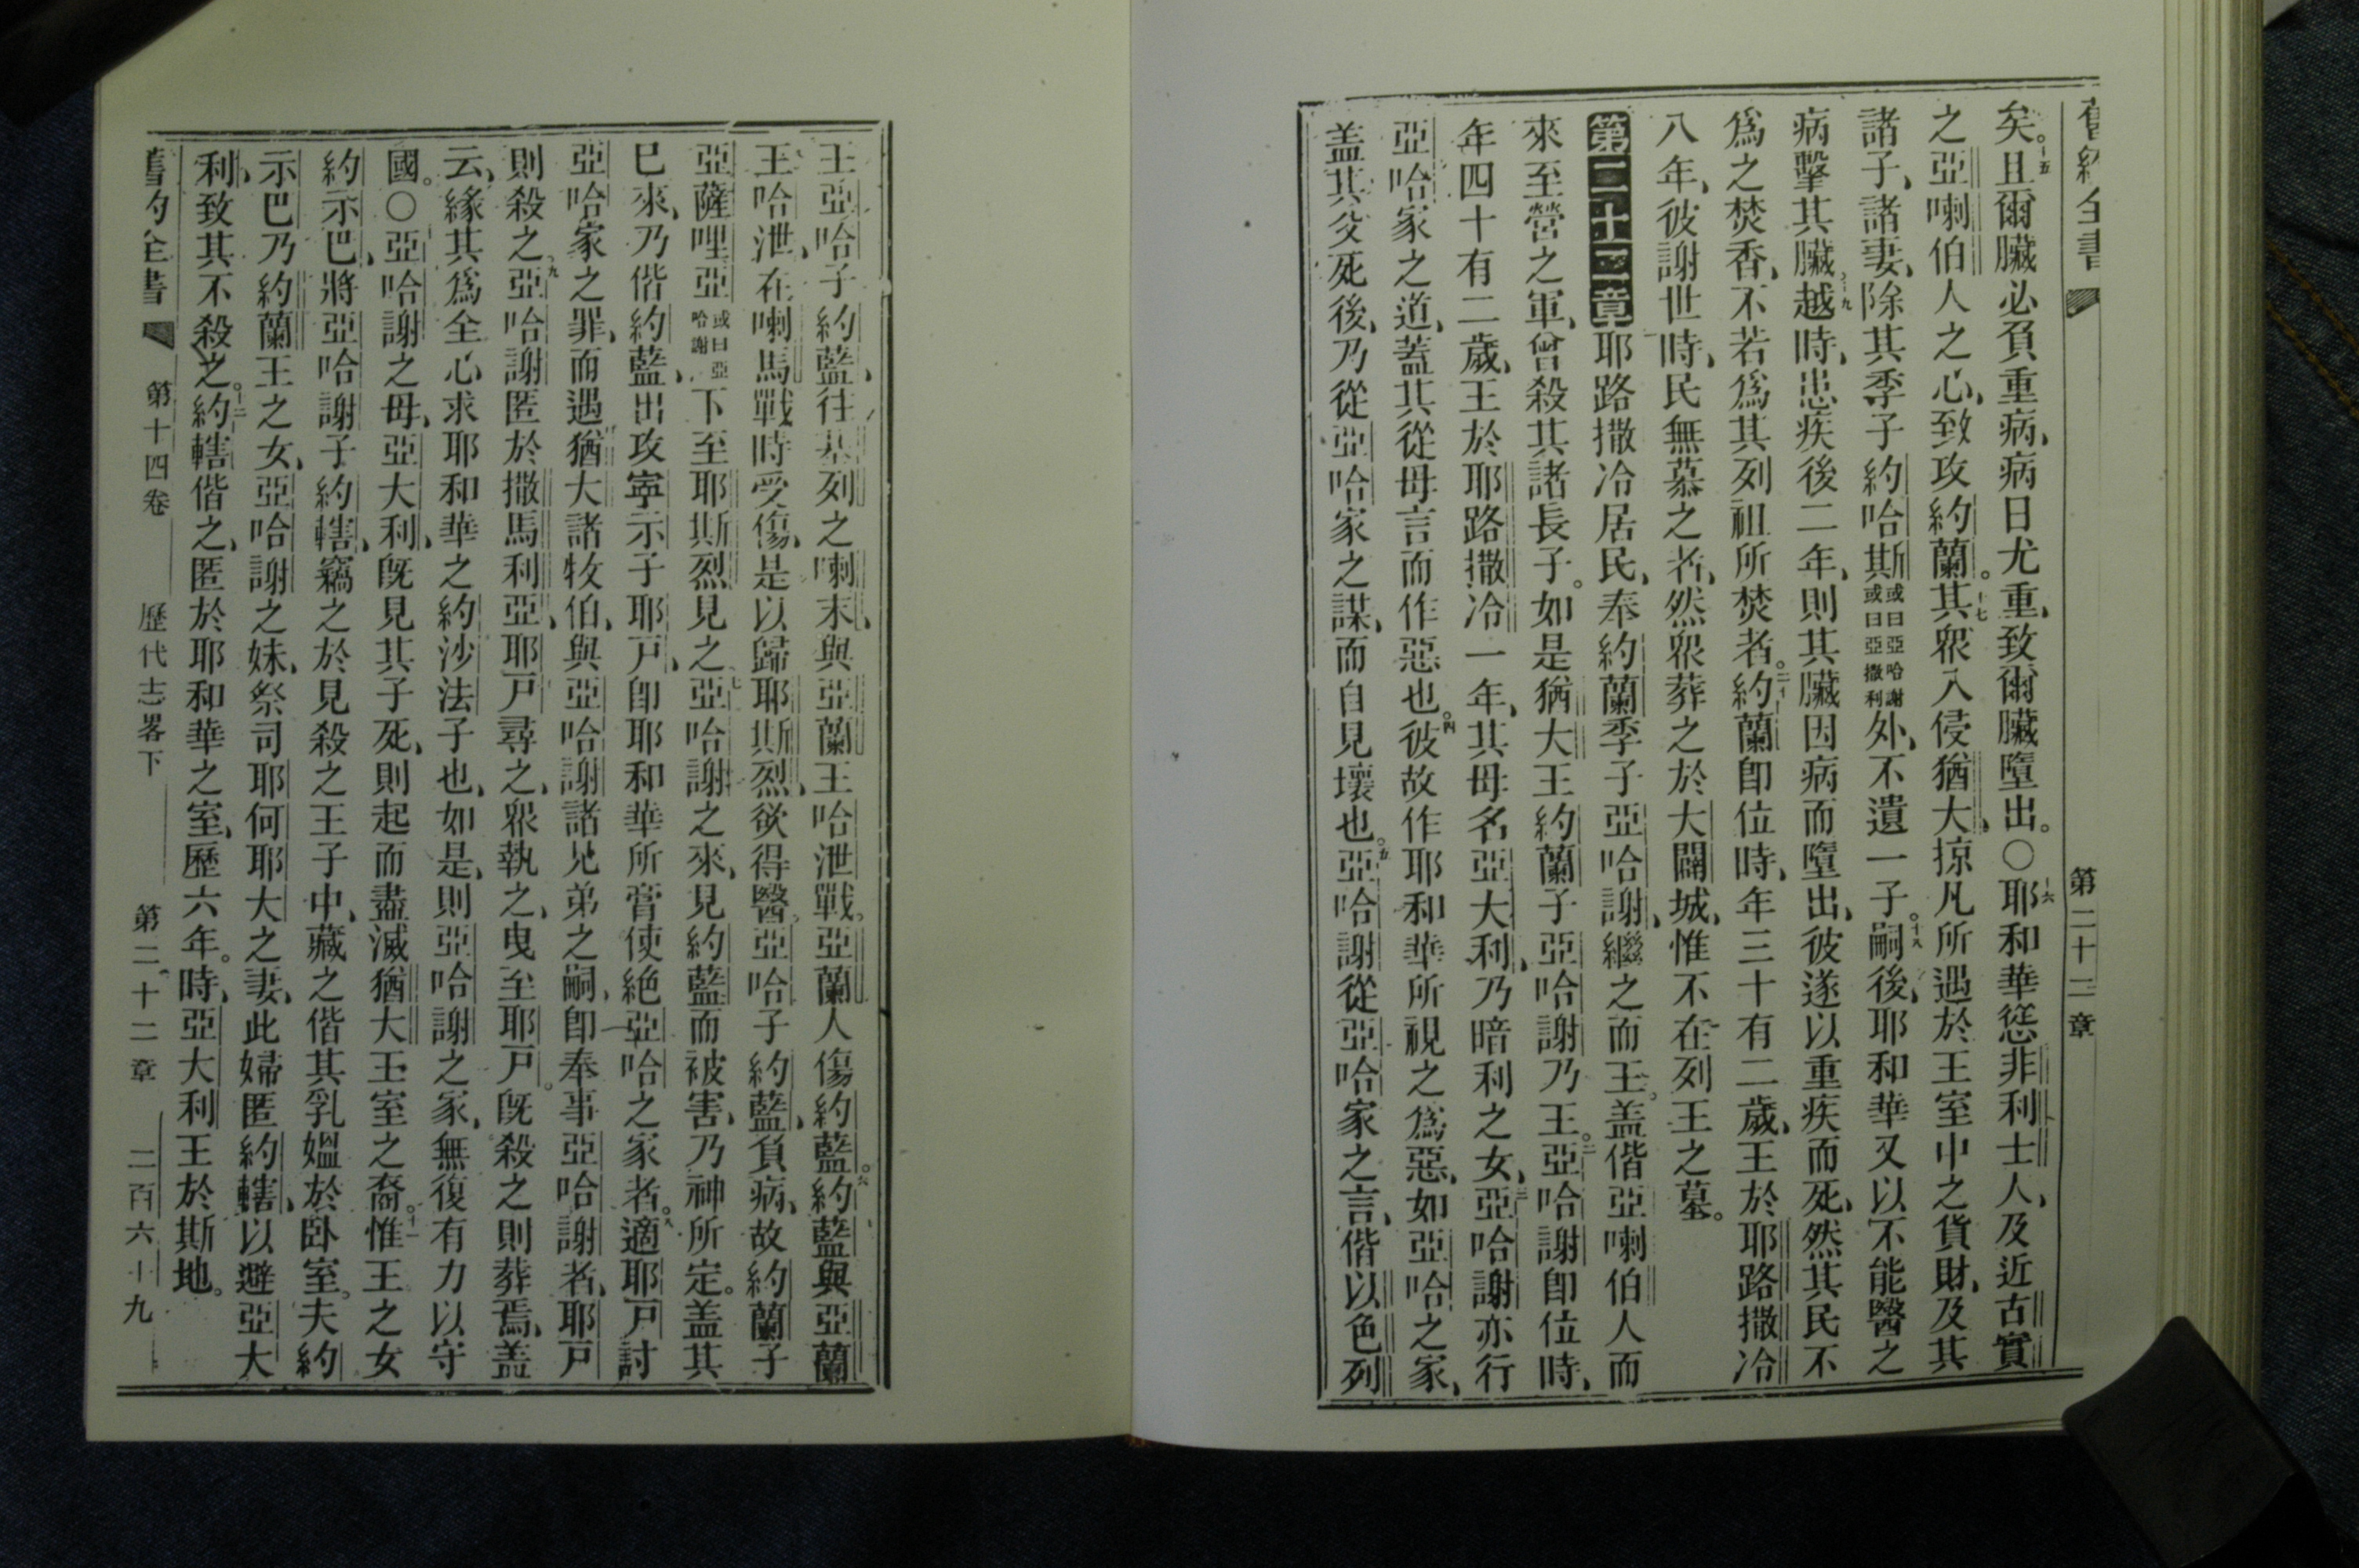 舊約全書 第二十二章
矣。十五且爾臟必負重病、病日尤重、致爾臟墮出。○十六耶和華慫非利士人、及近古實
之亞喇伯人之心、致攻約蘭。十七其眾入侵猶大、掠凡所遇於王室中之貨財、及其
諸子、諸妻、除其季子約哈斯或曰亞哈謝或曰亞撒利外、不遺一子。十八嗣後、耶和華又以不能醫之
病擊其臟。十九越時、患疾後二年、則其臟因病而墮出、彼遂以重疾而死、然其民不
為之焚香、不若為其列祖所焚者。二十約蘭即位時、年三十有二歲、王於耶路撒冷
八年、彼謝世時、民無慕之者、然眾葬之於大闢城、惟不在列王之墓。
第二十二章 耶路撒冷居民、奉約蘭季子亞哈謝、繼之而王。盖偕亞喇伯人而
來至營之軍、曾殺其諸長子。如是猶大王約蘭子亞哈謝乃王。二亞哈謝即位時、
年四十有二歲、王於耶路撒冷一年、其母名亞大利、乃暗利之女、三亞哈謝亦行
亞哈家之道、蓋其從母言而作惡也。四彼故作耶和華所視之為惡、如亞哈之家、
盖其父死後、乃從亞哈家之謀、而自見壞也。五亞哈謝從亞哈家之言、偕以色列
王亞哈子約藍、往基列之喇末、與亞蘭王哈泄戰。亞蘭人傷約藍。六約藍與亞蘭
王哈泄、在喇馬戰時受傷、是以歸耶斯烈、欲得醫。亞哈子約藍、負病、故約蘭子
亞薩哩亞或曰亞哈謝下至耶斯烈見之。七亞哈謝之來、見約藍而被害、乃神所定。盖其
已來、乃偕約藍、出攻寧示子耶戶、即耶和華所膏使絕亞哈之家者。八適耶戶討
亞哈家之罪、而遇猶大諸牧伯、與亞哈謝諸兄弟之嗣、即奉事亞哈謝者、耶戶
則殺之。九亞哈謝匿於撒馬利亞、耶戶尋之、眾執之、曳至耶戶。既殺之則葬焉、盖
云、緣其為全心求耶和華之約沙法子也、如是、則亞哈謝之家、無復有力以守
國。○十亞哈謝之母、亞大利、既見其子死、則起而盡滅猶大王室之裔。十一惟王之女
約示巴、將亞哈謝子約轄、竊之於見殺之王子中、藏之偕其乳媼於卧室。夫約
示巴乃約蘭王之女、亞哈謝之妹、祭司耶何耶大之妻、此婦匿約轄、以避亞大
利、致其不殺之。十二約轄偕之、匿於耶和華之室、歷六年。時、亞大利王於斯地。
舊約全書 第十四卷 歷代志畧下 第二十二章 二百六十九